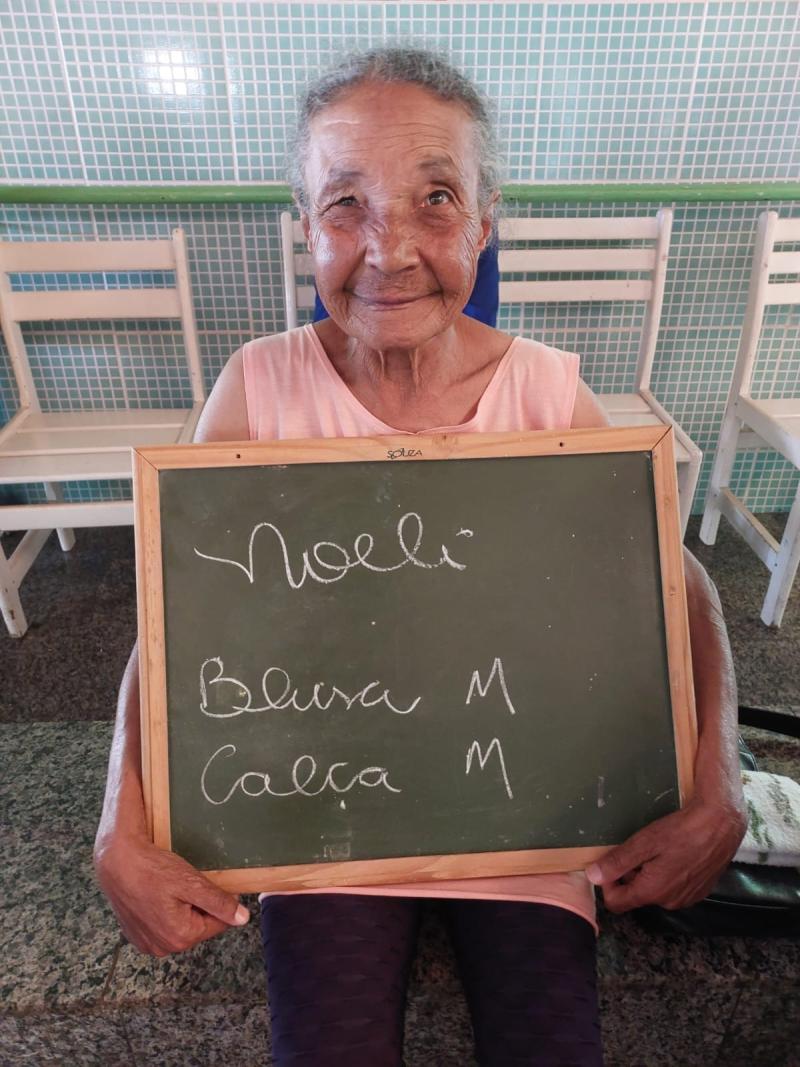 SOUZA
Noeli
Blusa M
Calça M